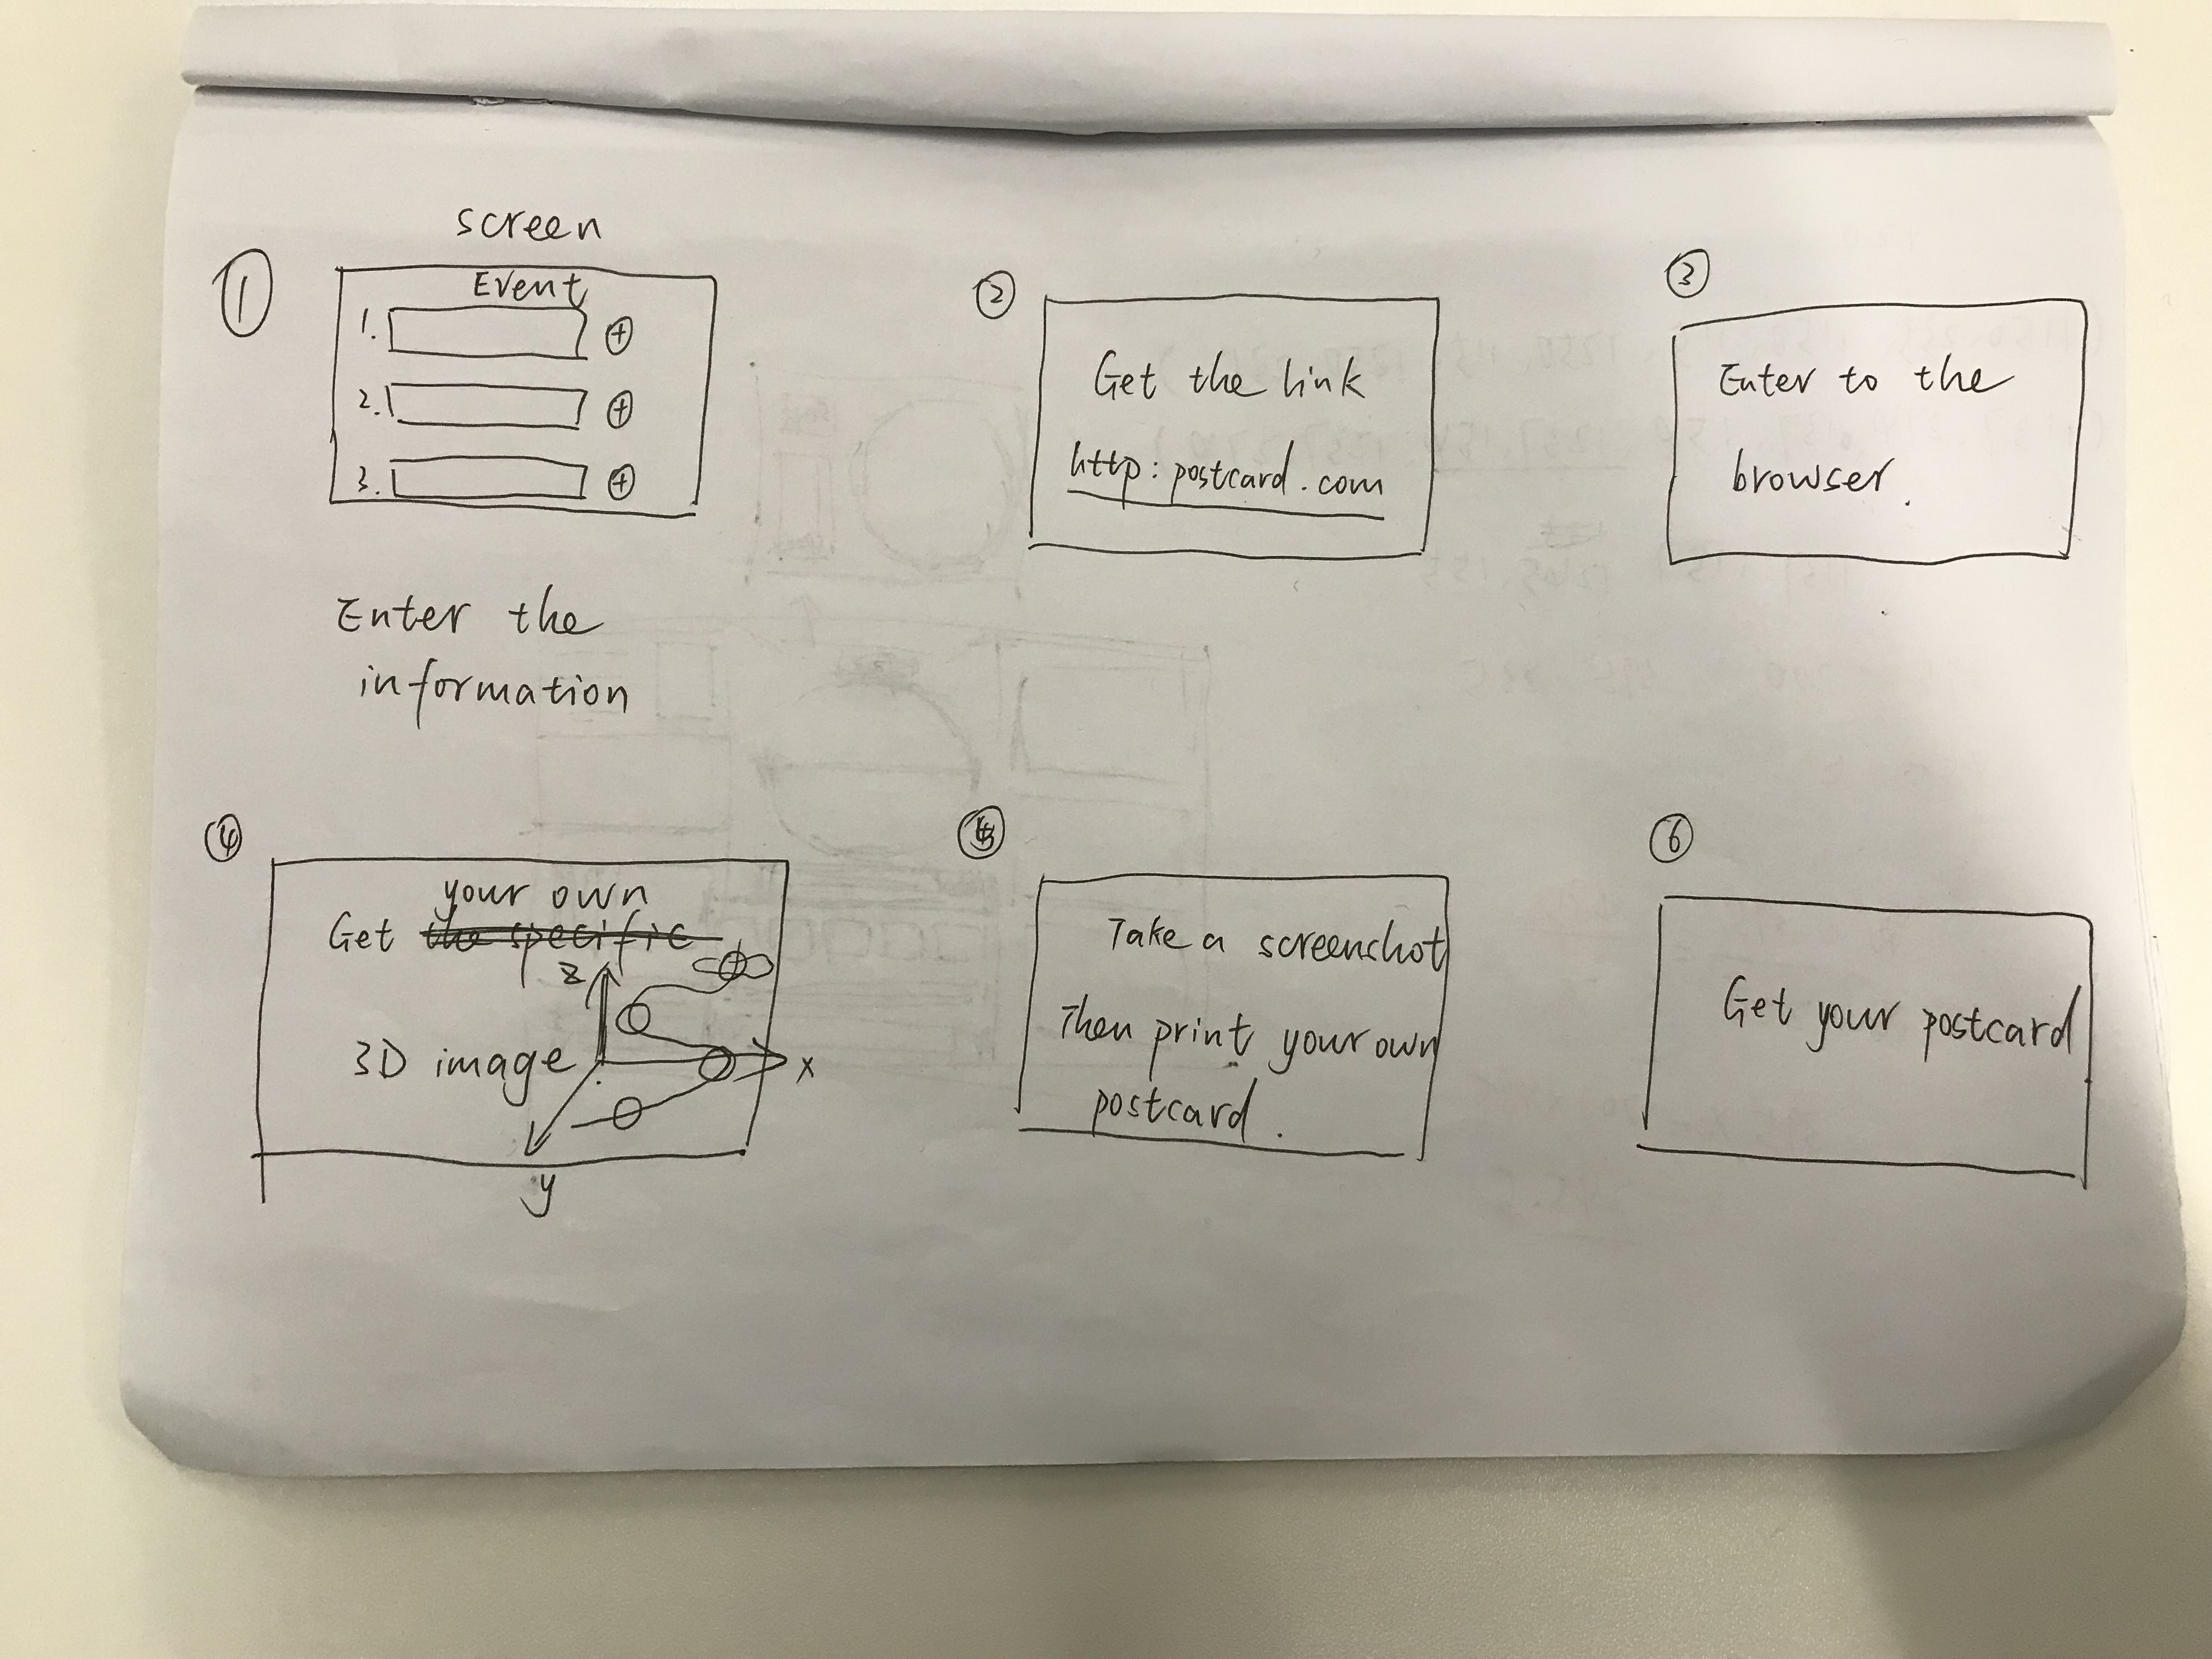 screen
①
Event
1. ⊕
2. ⊕
3. ⊕
Enter the
information
②
Get the link
http:postcard.com
③
Enter to the
browser.
④
your own
Get the specific
z
3D image
x
y
⑤
Take a screenshot
Then print your own
postcard.
⑥
Get your postcard